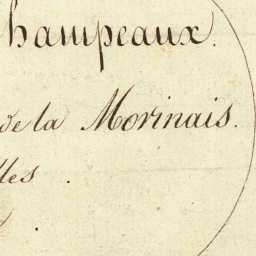 hampeaux.
de la Morinais.
lles.